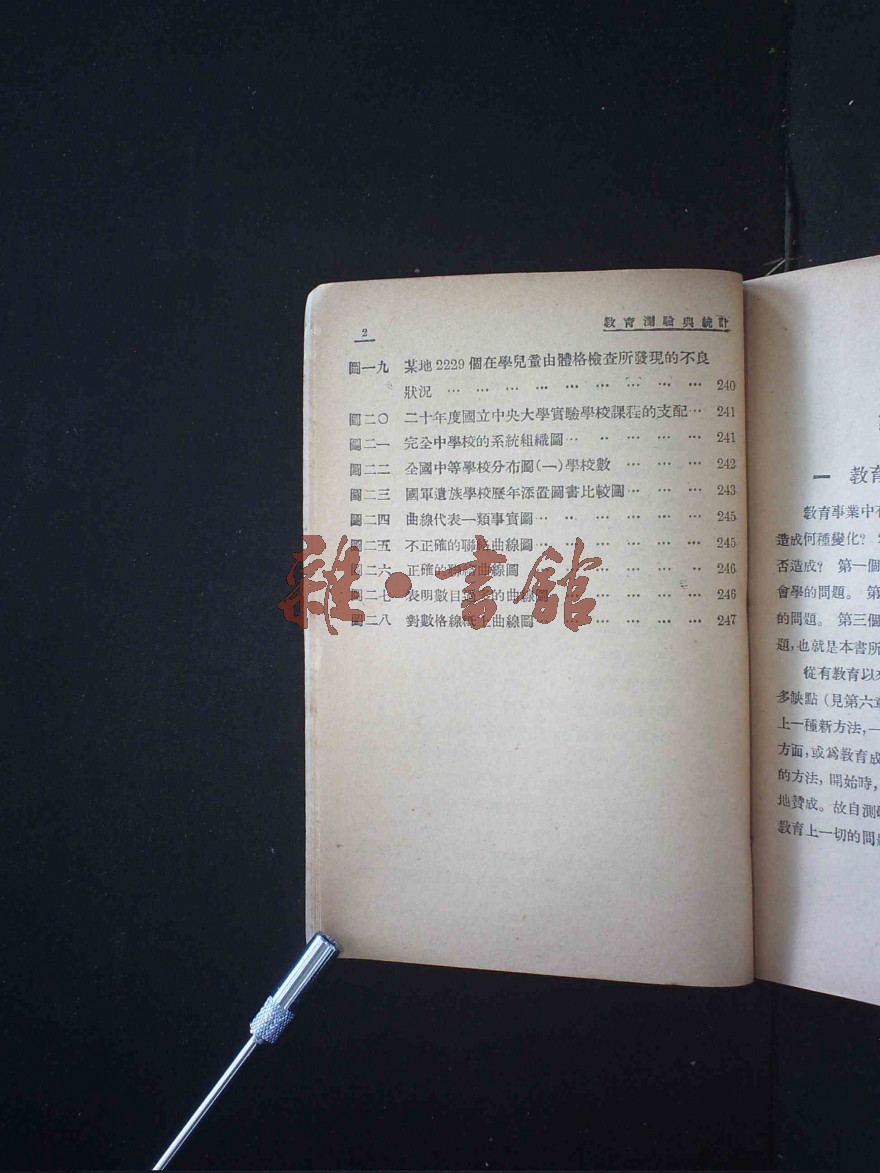 2
教育測驗與統計
圖一九 某地2229個在學兒童由體格檢查所發現的不良
狀況 … … … … … … … … … … 240
圖二〇 二十年度國立中央大學實驗學校課程的支配… 241
圖二一 完全中學校的系統組織圖… … … … … … 241
圖二二 全國中等學校分布圖(一)學校數 … … … … 242
圖二三 國軍遺族學校歷年添置圖書比較圖… … … … 243
圖二四 曲線代表一類事實圖… … … … … … … 245
圖二五 不正確的聯絡曲線圖… … … … … … … 245
圖二六 正確的聯絡曲線圖 … … … … … … 246
圖二七 表明數目 的曲線圖 … … … … … … 246
圖二八 對數格線紙上曲線圖 … … … … … … 247
雜·書館
一 教育
教育事業中
造成何種變化?
否造成? 第一個
會學的問題。 第
的問題。 第三個
題,也就是本書所
從有教育以來
多缺點(見第六章
上一種新方法,一
方面,或爲教育成
的方法,開始時,
地贊成。故自測
教育上一切的問